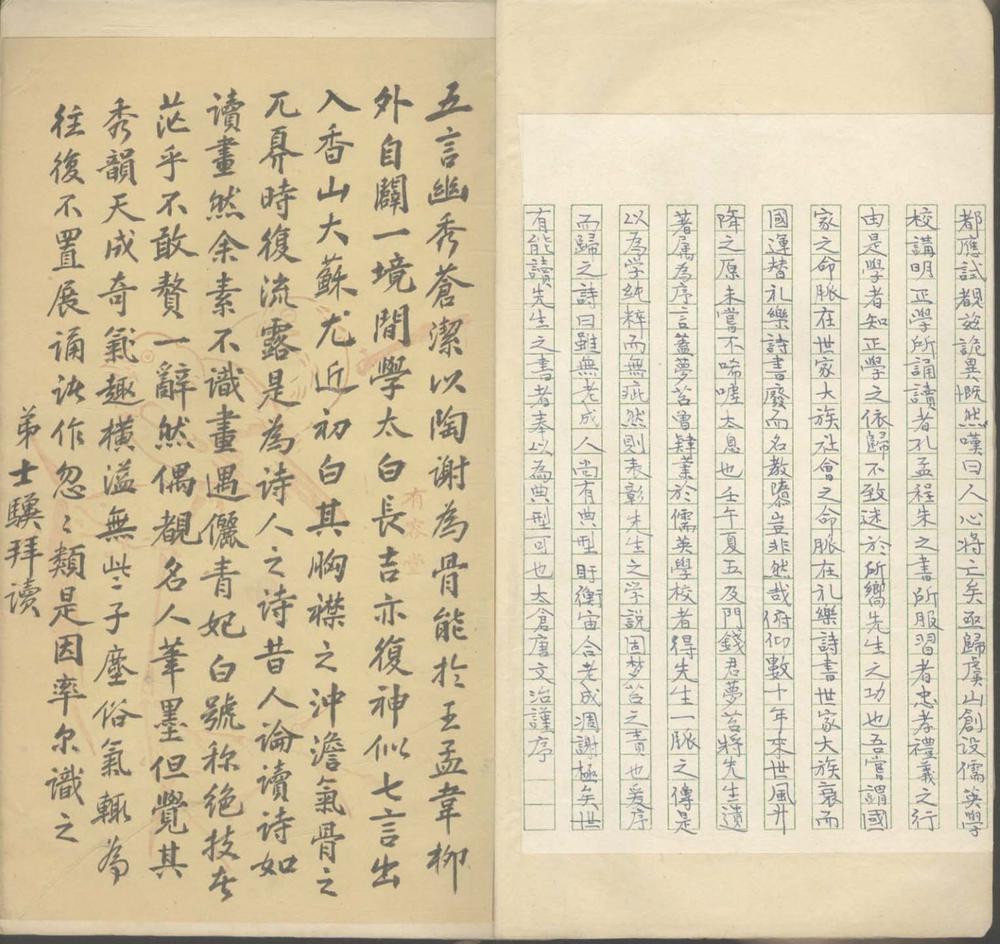 都應試覩茲詭異慨然嘆曰人心將亡矣亟歸虞山創設儒英學
校講明正學所誦讀者孔孟程朱之書所服習者忠孝禮義之行
由是學者知正學之依歸不致迷於所嚮先生之功也吾嘗謂國
家之命脈在世家大族社會之命脈在礼樂詩書世家大族衰而
國運替礼樂詩書廢而名教隳豈非然哉俯仰數十年來世風升
降之原未嘗不唏噓太息也壬午夏五及門錢君夢苕將先生遺
著属為序言蓋夢苕曾肄業於儒英學校者得先生一脈之傳是
以為学純粹而無疵然則表彰先生之学説固梦苕之責也爰序
而歸之詩曰雖無老成人尚有典型盱衡宙合老成凋謝極矣世
有能讀先生之書者奉以為典型可也太倉唐文治謹序
五言幽秀蒼潔以陶謝為骨能於王孟韋柳
外自闢一境間學太白長吉亦復神似七言出
入香山大蘇尤近初白其胸襟之沖澹氣骨之
兀奡時復流露是為詩人之詩昔人論讀詩如
讀畫然余素不識畫遇儷青妃白號称絕技者
茫乎不敢贅一辭然偶覩名人筆墨但覺其
秀韻天成奇氣趣橫溢無些子塵俗氣輒為
往復不置展誦訣作忽〻類是因率尔識之
弟士驥拜讀
有容堂